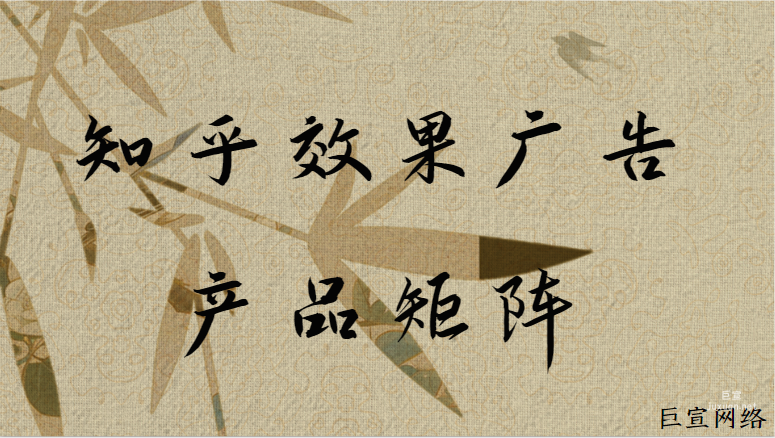 知乎效果广告
产品矩阵
巨宣
巨宣网络